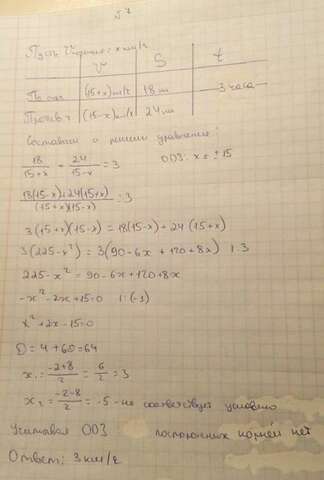 №7
Пусть Vтечения: x км/ч
V S t
По теч (15+x)км/ч 18 км 3 часа
Против т (15-x)км/ч 24 км
Составим и решим уравнение:
18/(15+x) + 24/(15-x) = 3 ОДЗ: x ≠ ±15
(18(15-x)+24(15+x))/((15+x)(15-x)) = 3
3(15+x)(15-x) = 18(15-x) + 24(15+x)
3(225-x²) = 3(90-6x+120+8x) |:3
225-x² = 90-6x+120+8x
-x²-2x+15=0 |:(-1)
x²+2x-15=0
D=4+60=64
x₁=(-2+8)/2=6/2=3
x₂=(-2-8)/2=-5 - не соответствует условию
Учитывая ОДЗ посторонних корней нет
Ответ: 3 км/ч